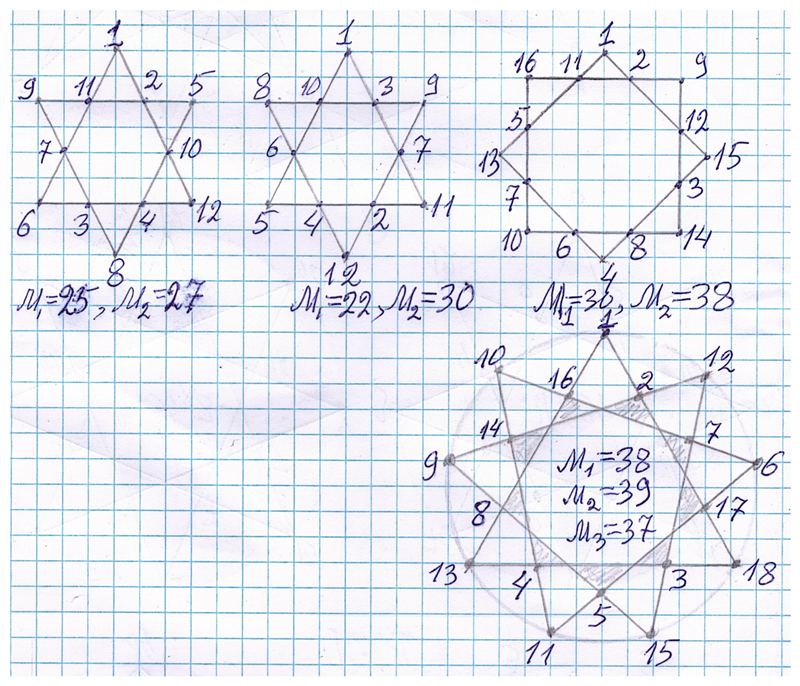 1 1 1
9 11 2 5 8 10 3 9 16 11 2 9
7 10 6 7 5 12
13 15
6 3 4 12 5 4 2 11 7 3
8 12 10 6 8 14
4
M₁=25, M₂=27 M₁=22, M₂=30 M₁=36, M₂=38
1
10 16 2 12
14 7
9 M₁=38 6
M₂=39
8 M₃=37 17
13 4 3 18
5
11 15